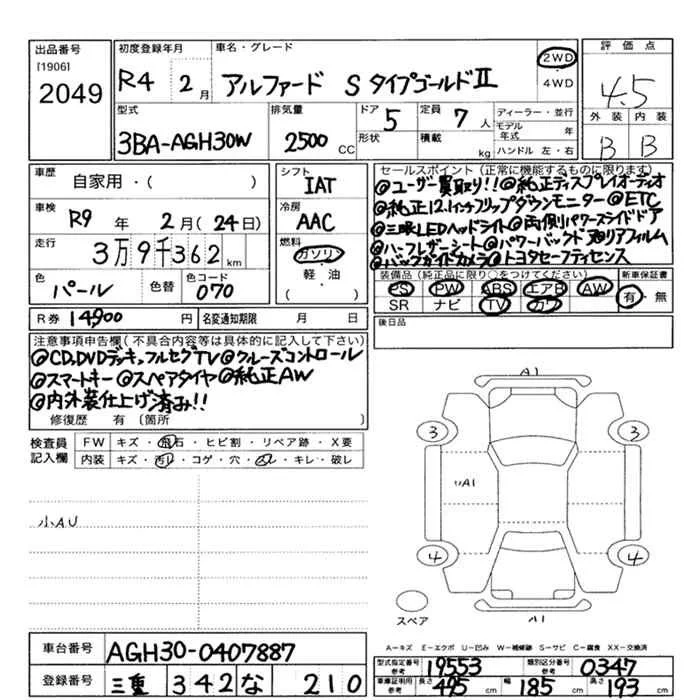 出品番号
[1906]
2049
初度登録年月
R4 2月
車名・グレード
アルファード S タイプゴールドⅡ
2WD
・
4WD
評価点
4.5
外装 内装
B B
型式
3BA-AGH30W
排気量
2500 CC
ドア 5
形状
定員 7 人
積載 kg
ディーラー・並行
モデル年式 年
ハンドル 左・右
車歴 自家用・( )
車検 R9 年 2月(24日)
走行 3万9千362 km
色 パール
色替
色コード 070
シフト
IAT
冷房
AAC
燃料
ガソリン
・
軽・油
・
( )
セールスポイント(正常に機能するものに限ります)
@ユーザー買取り!! @純正ディスプレイオーディオ
@純正12.1インチフリップダウンモニター @ETC
@三眼LEDヘッドライト @両側パワースライドドア
@ハーフレザーシート @パワーバックドア
@バックガイドカメラ @トヨタセーフティセンス
装備品(純正品に限り○をつけてください)
PS PW ABS エアB AW
SR ナビ TV カワ
新車保証書
有・無
後日品
R券 14900 円
名変通知期限 月 日
注意事項申告欄(不具合内容等は具体的に記入して下さい)
@CD,DVDデッキ,フルセグTV @クルーズコントロール
@スマートキー @スペアタイヤ @純正AW
@内外装仕上げ済み!!
修復歴 有〔箇所 〕
検査員記入欄
FW キズ・飛石・ヒビ割・リペア跡・X要
内装 キズ・汚レ・コゲ・穴・スレ・キレ・破レ
小AU
A1
3 3
A1
4 4
スペア
A1
A=キズ E=エクボ U=凹み W=補修跡 S=サビ C=腐食 XX=交換済
車台番号 AGH30-0407887
登録番号 三重 342 な 210
型式指定番号 参考 19553
類別区分番号 参考 0347
車庫証明用 参考 長さ 495 cm 幅 185 cm 高さ 193 cm